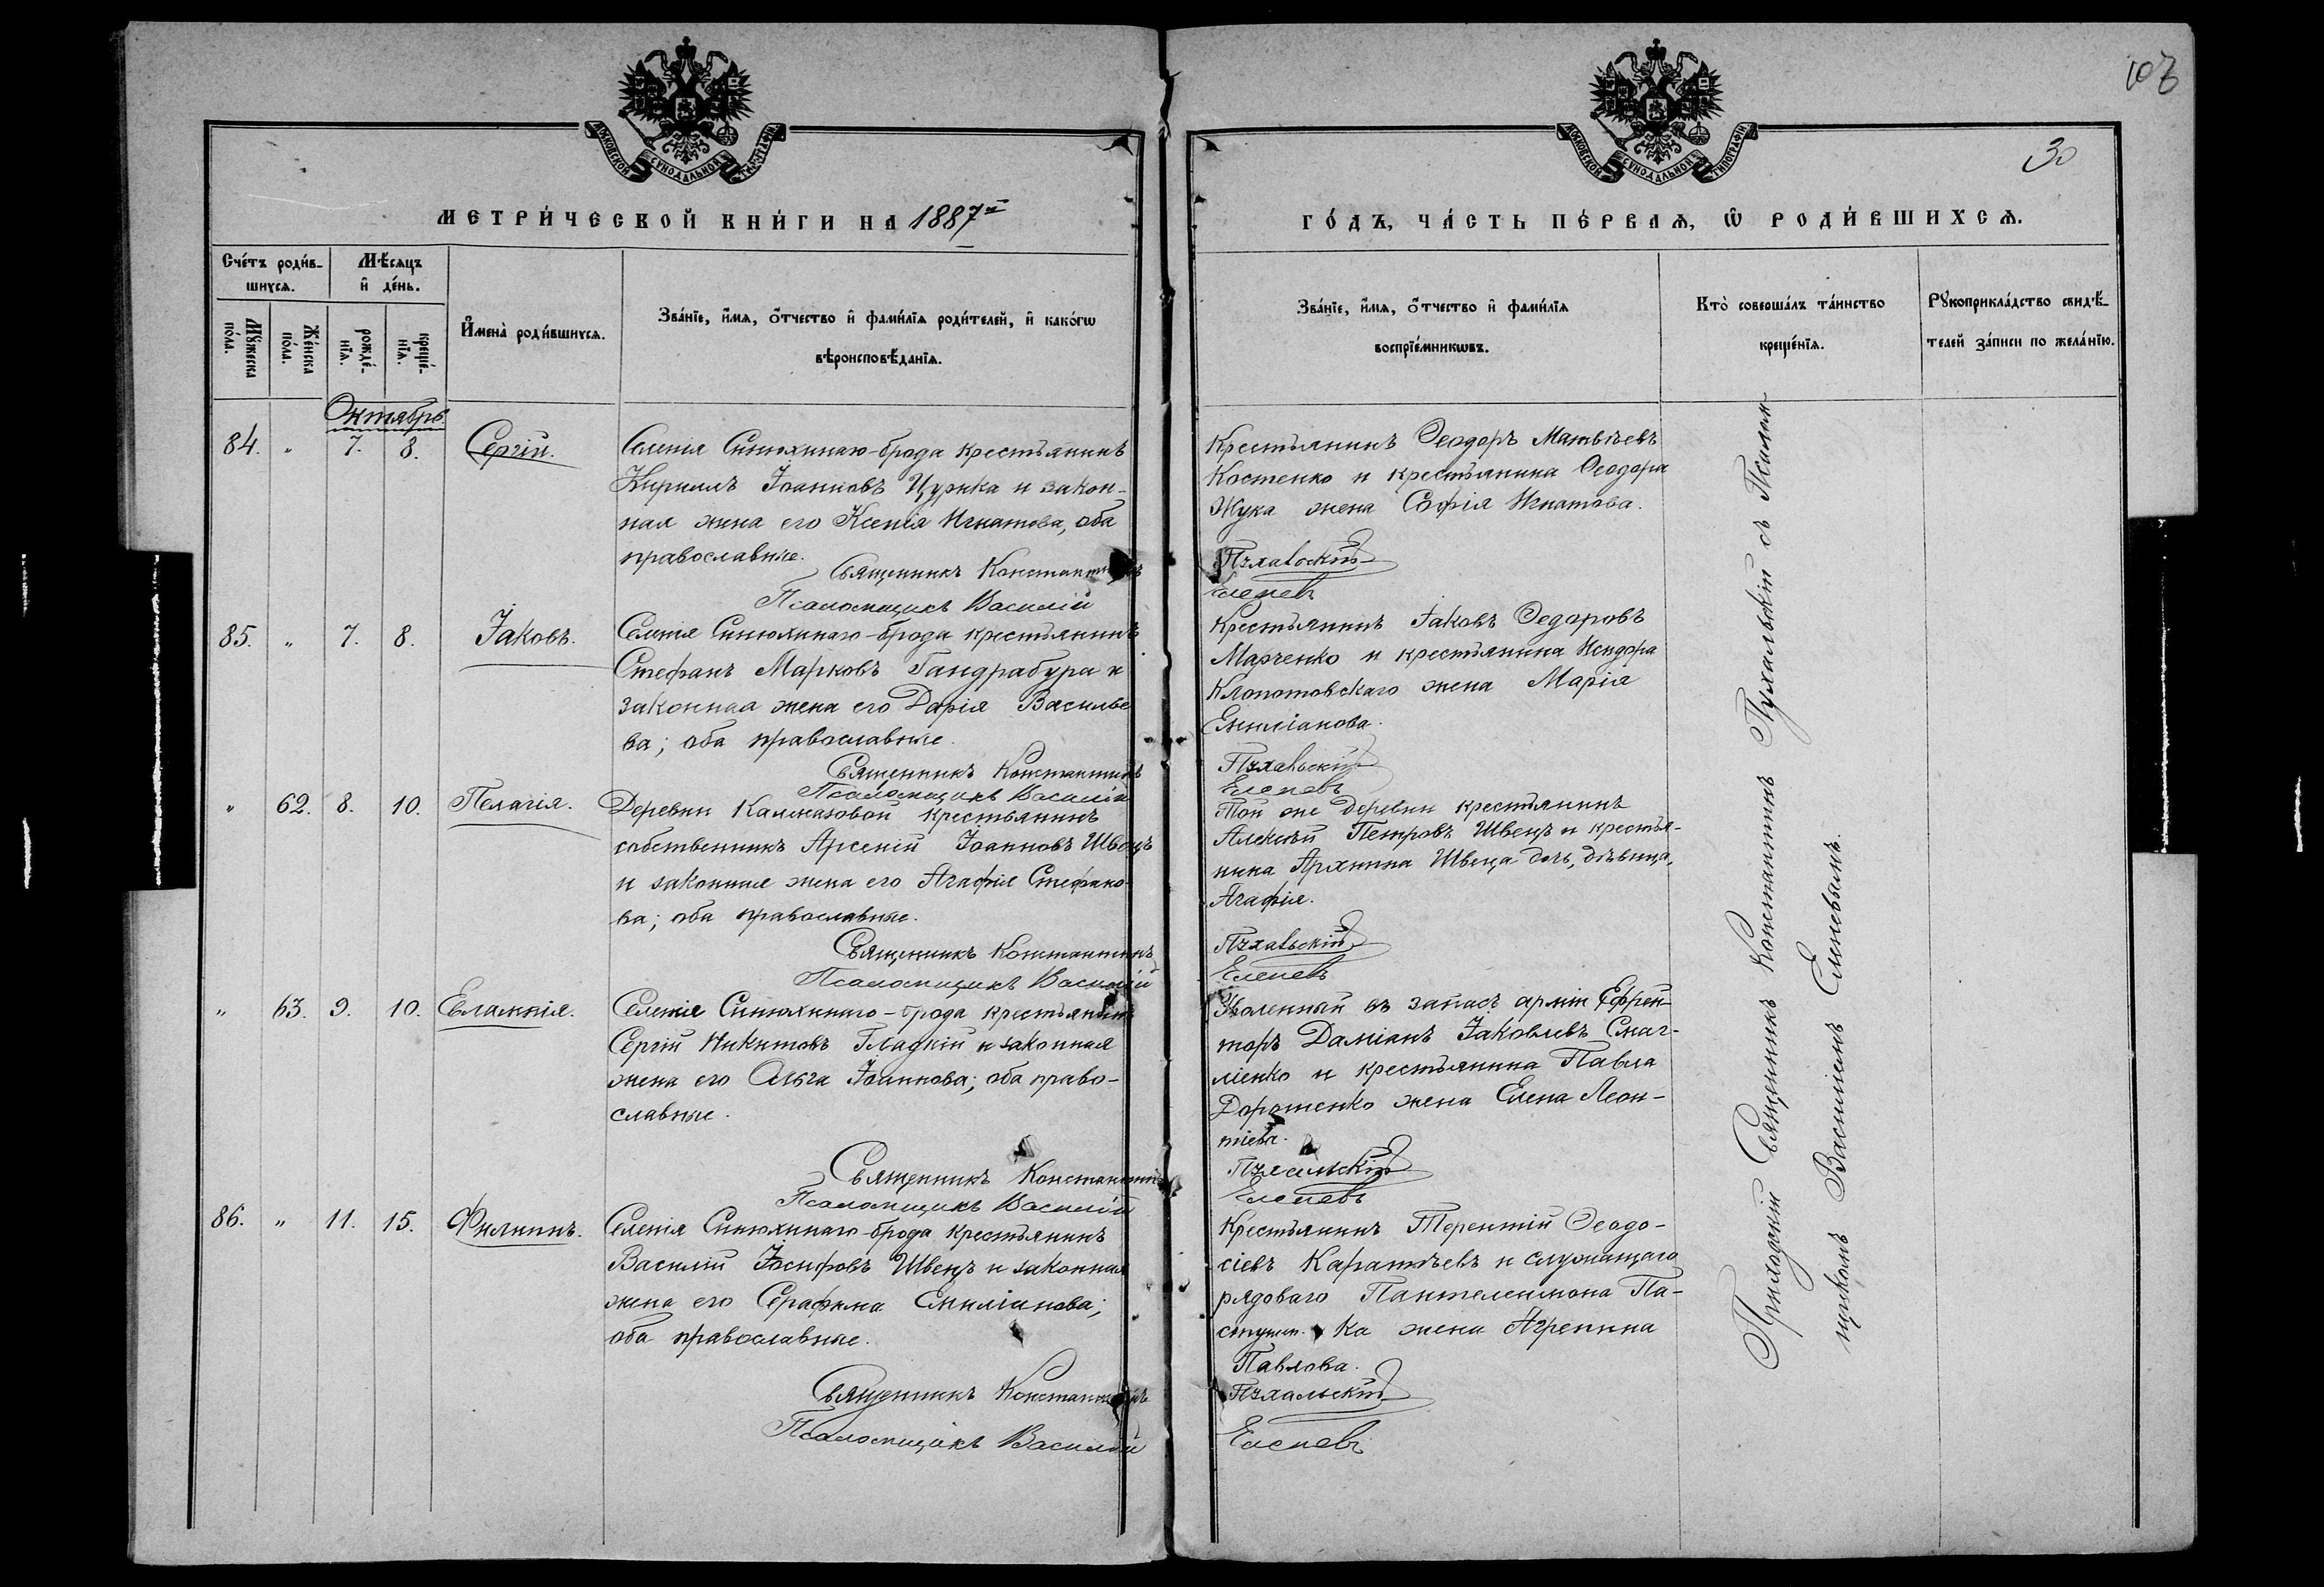 107
30
МОСКОВСКОЙ СѴНОДАЛЬНОЙ ТИПОГРАФІИ
МОСКОВСКОЙ СѴНОДАЛЬНОЙ ТИПОГРАФІИ
МЕТРИ́ЧЕСКОЙ КНИ́ГИ НА 1887й
ГО́ДЪ, ЧА́СТЬ ПЕ́РВАѦ, Ѡ҆ РОДИ́ВШИХСѦ.
Сче́тъ роди́в-
шихсѧ.
Мꙋ́жеска по́ла.
Же́нска по́ла.
Мѣ́сѧцъ
и҆ де́нь.
рожде́-нїѧ.
креще́-нїѧ.
И҆мена̀ роди́вшихсѧ.
Зва́нїе, и҆́мѧ, ѻ҆́тчество и҆ фами́лїѧ роди́телей, и҆ како́гѡ
вѣроисповѣ́данїѧ.
Зва́нїе, и҆́мѧ, ѻ҆́тчество и҆ фами́лїѧ
воспрїе́мникѡвъ.
Кто̀ соверша́лъ та́инство
креще́нїѧ.
Рꙋкоприкла́дство свидѣ́-
телей за́писи по жела́нїю.
Октябрь
84. " 7. 8. Сергій.
Селенія Синюхинаго-брода крестьянинъ
Кириллъ Іоанновъ Цурка и закон-
ная жена его Ксенія Игнатова, оба
православные.
Священникъ Константинъ
Псаломщикъ Василій
Крестьянинъ Ѳеодоръ Матвѣевъ
Костенко и крестьянина Ѳеодора
Жука жена Софія Игнатова.
Пухальскій
Еленевъ
85. " 7. 8. Іаковъ.
Селенія Синюхинаго-брода крестьянинъ
Стефанъ Марковъ Гандрабура и
законная жена его Дарія Василье
ва; оба православные.
Священникъ Константинъ
Псаломщикъ Василій
Крестьянинъ Іаковъ Ѳедоровъ
Марченко и крестьянина Исидора
Клопотовскаго жена Марія
Емиліанова.
Пухальскій
Еленевъ
" 62. 8. 10. Пелагія.
Деревни Калмазовой крестьянинъ
собственникъ Арсеній Іоанновъ Швецъ
и законная жена его Агафія Стефано-
ва; оба православные.
Священникъ Константинъ
Псаломщикъ Василій
Той же деревни крестьянинъ
Алексѣй Петровъ Швецъ и крестья-
нина Архипа Швеца дочь, дѣвица,
Агафія.
Пухальскій
Еленевъ
" 63. 9. 10. Евлампія.
Селенія Синюхинаго-брода крестьянинъ
Сергій Никитовъ Гладкій и законная
жена его Ольга Іоаннова; оба право-
славные.
Священникъ Константинъ
Псаломщикъ Василій
Уволенный въ запасъ арміи Ефрей-
торъ Даміанъ Іаковлевъ Смаг-
ліенко и крестьянина Павла
Дорошенко жена Елена Леон-
тіева.
Пухальскій
Еленевъ
86. " 11. 15. Филиппъ.
Селенія Синюхинаго-брода крестьянинъ
Василій Іосифовъ Швецъ и законная
жена его Серафима Емиліанова;
оба православные.
Священникъ Константинъ
Псаломщикъ Василій
Крестьянинъ Терентій Ѳеодо-
сіевъ и служащаго
рядоваго Пантелеимона Па-
жена Агрепина
Павлова.
Пухальскій
Еленевъ
Приходскій Священникъ Константинъ Пухальскій съ Псалом-
щикомъ Василіемъ Еленевымъ.